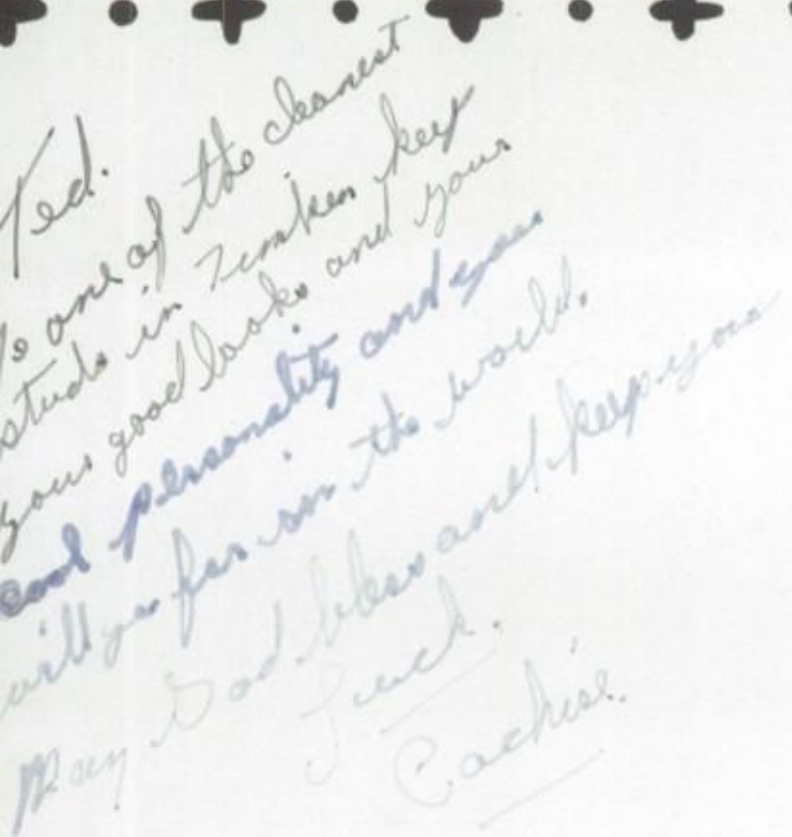 Ted.
To one of the cleanest
studs in Timken keep
your good looks and your
cool personality and you
will go far in the world.
May God bless and keep you
Luck.
Cochise.